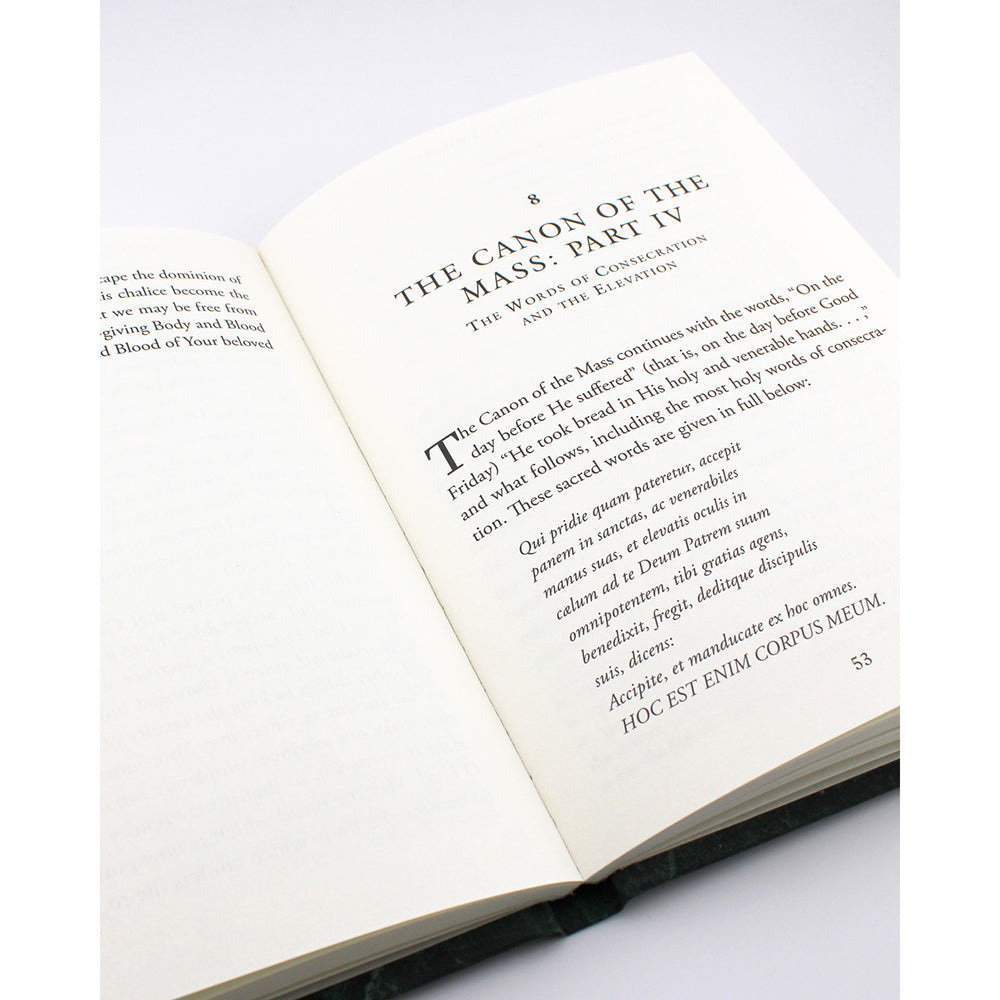 cape the dominion of
is chalice become the
t we may be free from
-giving Body and Blood
d Blood of Your beloved
8
THE CANON OF THE
MASS: PART IV
THE WORDS OF CONSECRATION
AND THE ELEVATION
The Canon of the Mass continues with the words, “On the
day before He suffered” (that is, on the day before Good
Friday) “He took bread in His holy and venerable hands. . . ,”
and what follows, including the most holy words of consecra-
tion. These sacred words are given in full below:
Qui pridie quam pateretur, accepit
panem in sanctas, ac venerabiles
manus suas, et elevatis oculis in
cælum ad te Deum Patrem suum
omnipotentem, tibi gratias agens,
benedixit, fregit, deditque discipulis
suis, dicens:
Accipite, et manducate ex hoc omnes.
HOC EST ENIM CORPUS MEUM.
53